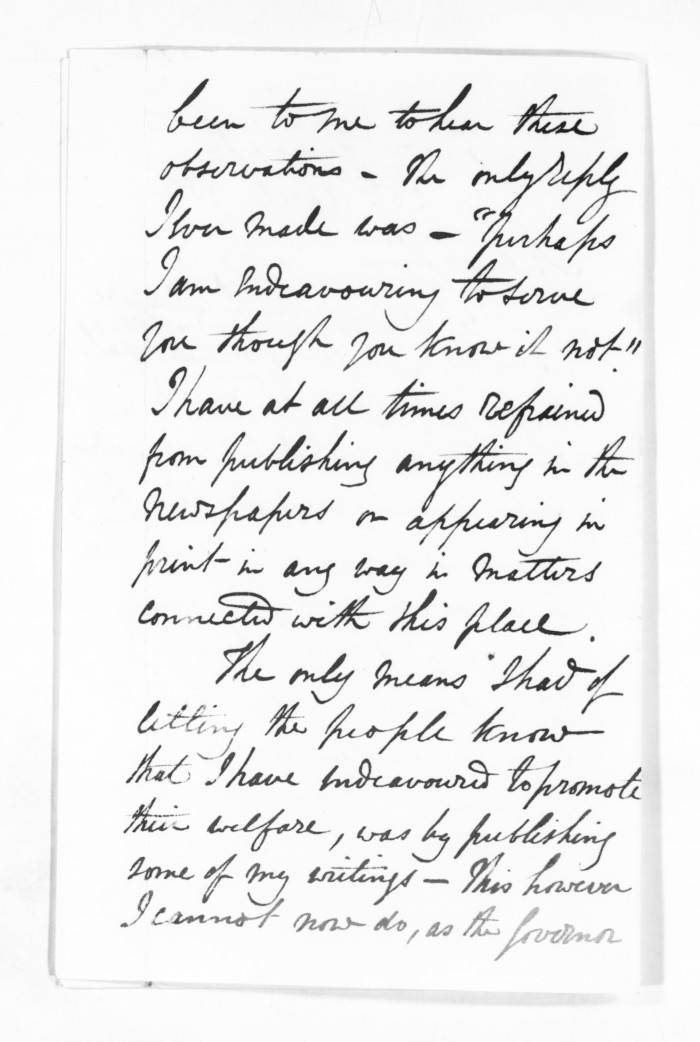 been to me to hear these
observations - the only reply
I ever made was - "perhaps
I am endeavouring to serve
you though you know it not."
I have at all times refrained
from publishing anything in the
Newspapers or appearing in
print in any way in matters
connected with this place.
The only means I had of
letting the people know
that I have endeavoured to promote
their welfare, was by publishing
some of my writings - This however
I cannot now do, as the Governor